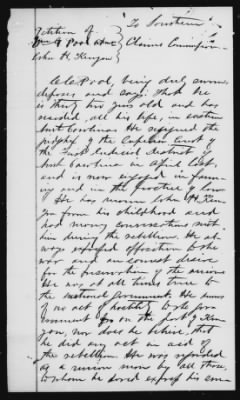 Petition of
Wm G Pool Admr
John H. Kenyon
To Southern
Claims Commission
C.C. Pool, being duly sworn,
deposes and says: That he
is thirty two years old and has
resided, all his life, in eastern
North Carolina. He resigned the
judgeship of the Superior Court of
the First Judicial District of
North Carolina in April last,
and is now engaged in farm-
ing and in the practice of law.
He has known John H. Ken-
yon from his childhood and
had many conversations with
him during the rebellion. He al-
ways expressed opposition to the
war and an earnest desire
for the preservation of the union.
He was at all times true to
the national government. He knows
of no act of hostility to the gov-
ernment on the part of Ken-
yon, nor does he believe, that
he did any act in aid of
the rebellion. He was regarded
as a union man by all those,
to whom he dared express his sen-